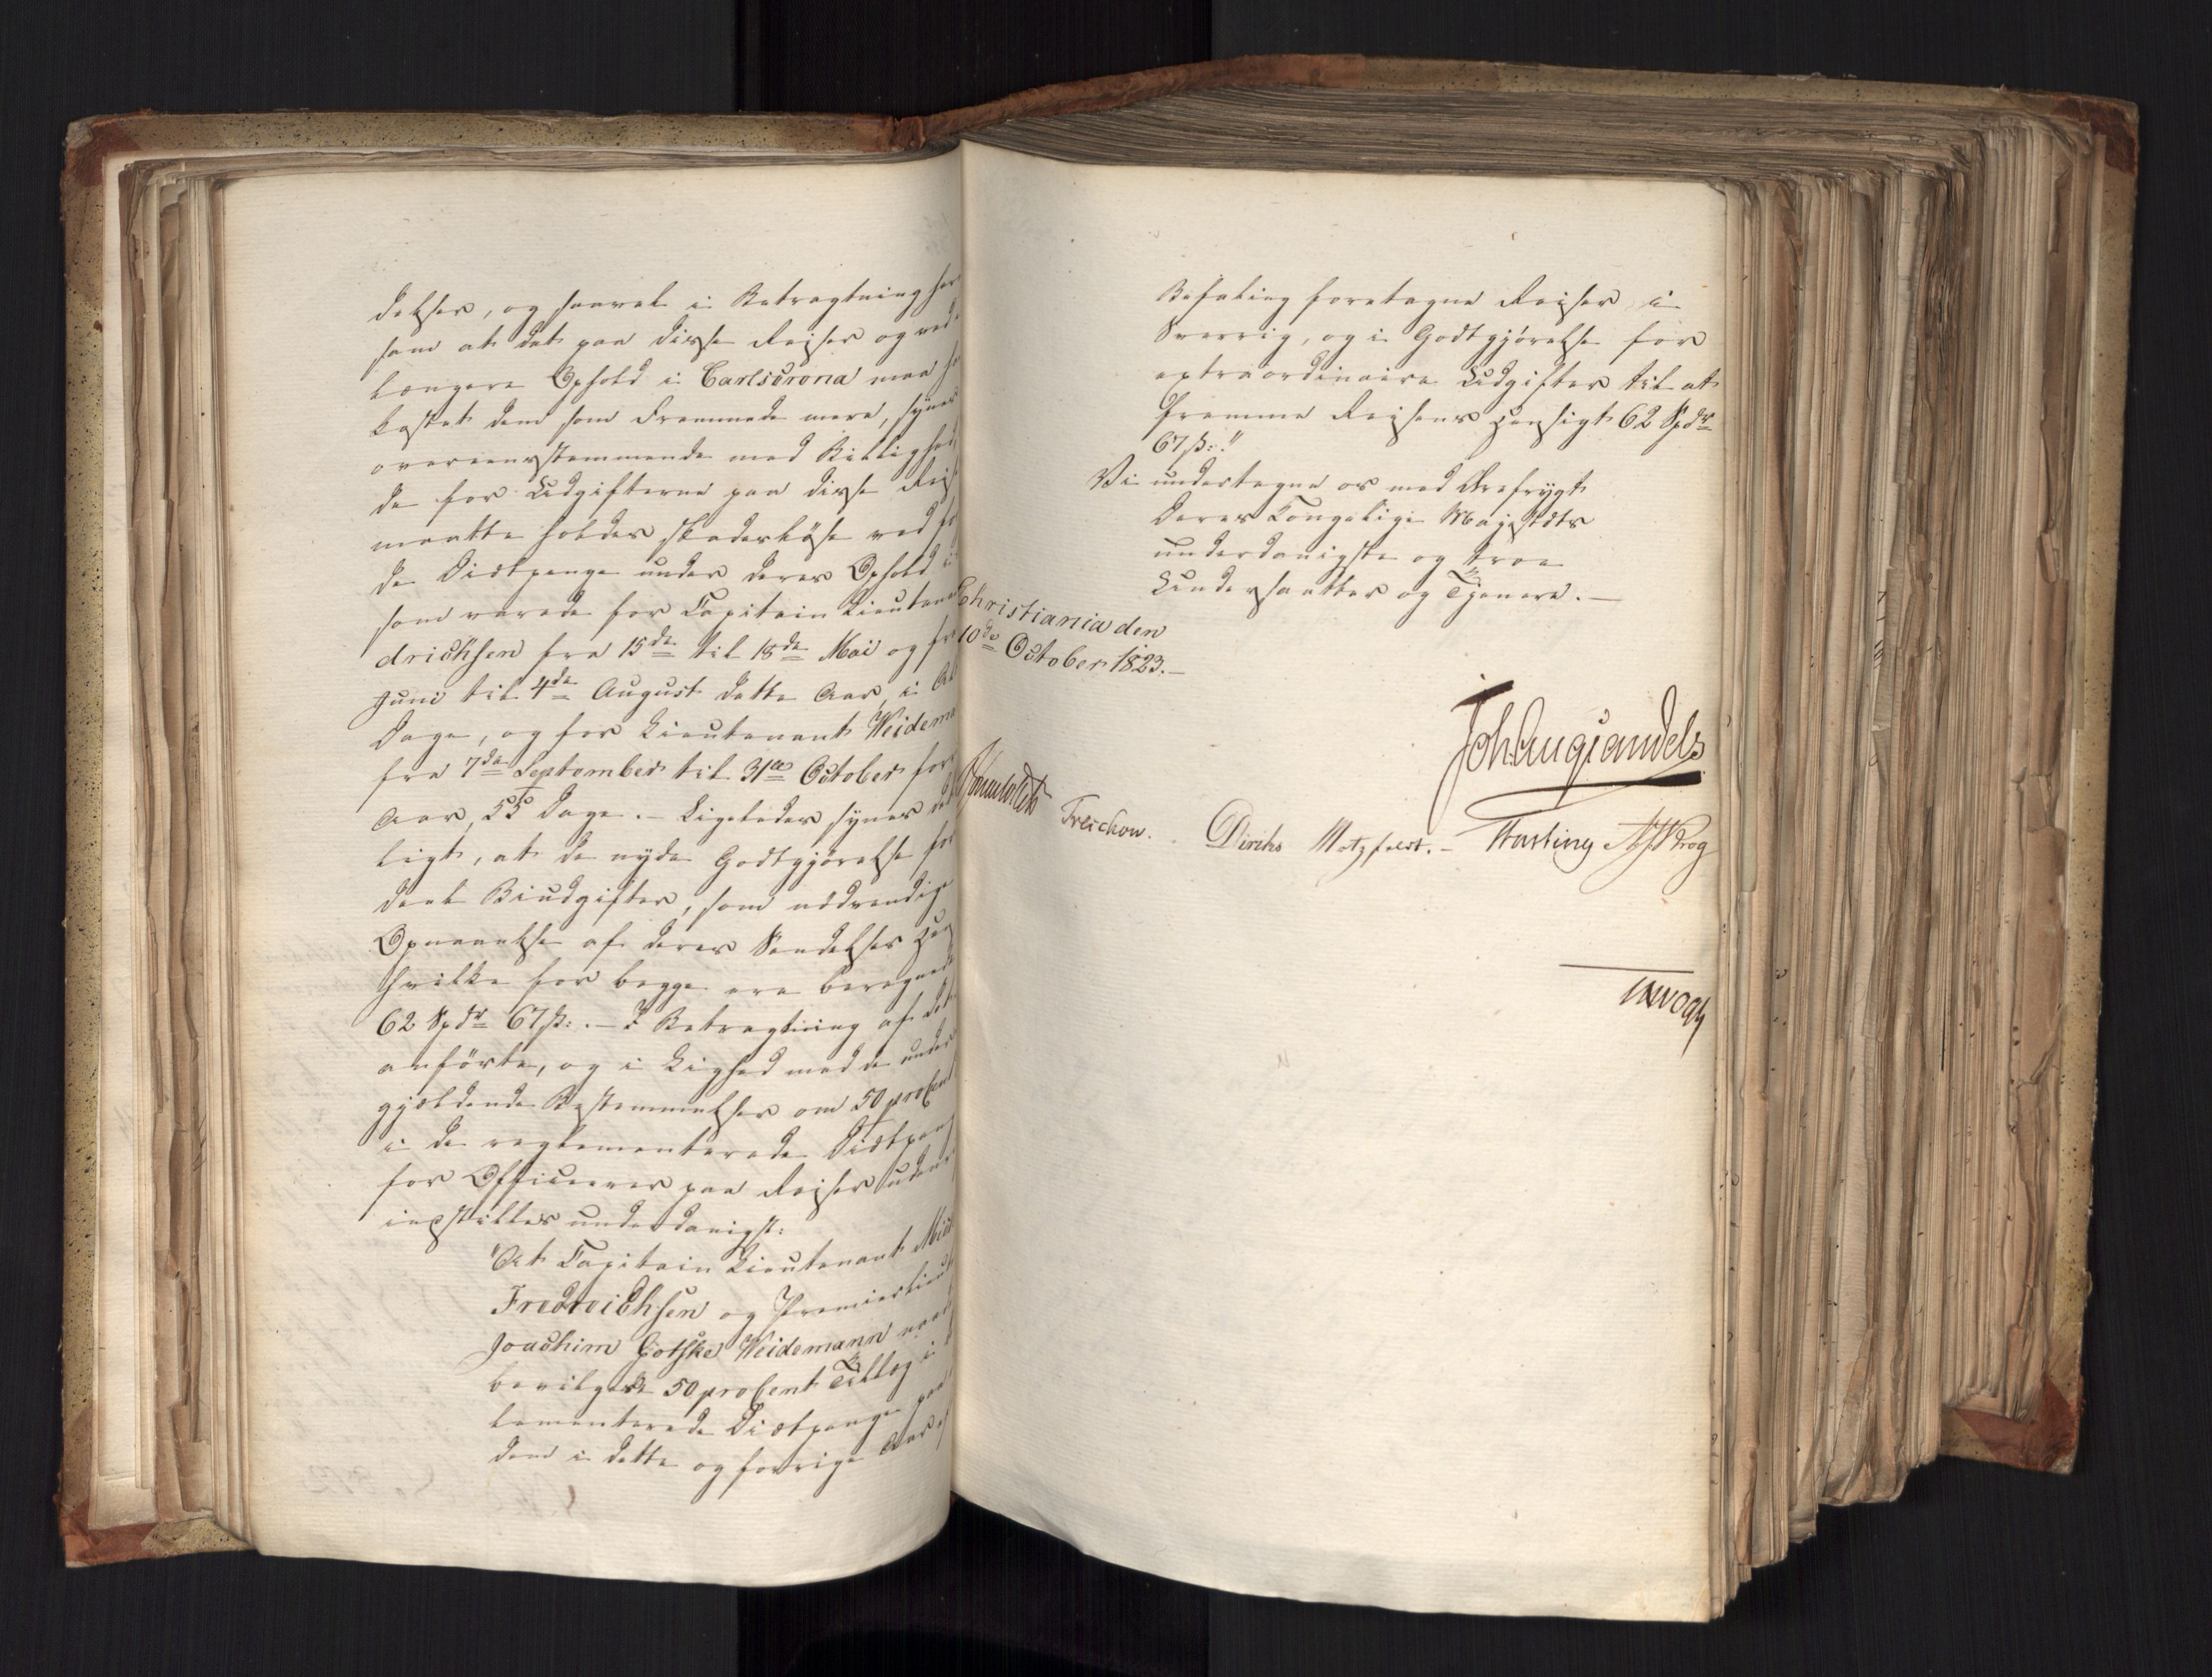 delser, og saavel i Betragtning her
som at det paa disse Reiser og ved
længere Ophold i Carlscrona maa ha
kostet dem som Fremmede mere, synes
overeensstemmende med Billighed,
de for Udgifterne paa disse Reis
maatte holdes skadesløse ved fo
de Diætpenge under deres Ophold i
som varede for Capitain Lieutena
drichsen fra 15de til 18de Mai og fra
Juni til 4de August dette Aar, i Al
Dage, og for Lieutenant Weidema
fra 7de September til 31te October for
Aar, 55 Dage. – Ligeledes synes det
ligt, at de nyde Godtgjørelse for
deel Biudgifter, som nødvendige
Opnaaelse af deres Sendelses Hen
hvilke for begge ere beregnede
62 Spdr 67 ß:. – I Betragtning af det
anførte, og i Lighed med de under
gjældende Bestemmelser om 50 procent
i de reglementerede Diætpeng
for Officerer paa Reiser udenr
indstilles underdanigst:
"At Capitain Lieutenant Mich
Fredrichsen og Premierlieut
Joachim Gotske Weidemann naad
bevilges 50 procent Tillæg i
lementerede Diætpenge paa
dem i dette og forrige Aar ef
Befaling foretagne Reiser i
Sverrig, og i Godtgjørelse for
extraordinaire Udgifter til at
fremme Reisens Hensigt 62 Spdr
67 ß:."
Vi undertegne os med Ærefrygt
Deres Kongelige Majestæts
underdanigste og troe
Undersaatter og Tjenere. –
Christiania den
10de October 1823. –
Joh Aug Sandels
Sommerhielm Treschow. Diriks Motzfeldt. – Fasting Krog
Vogt